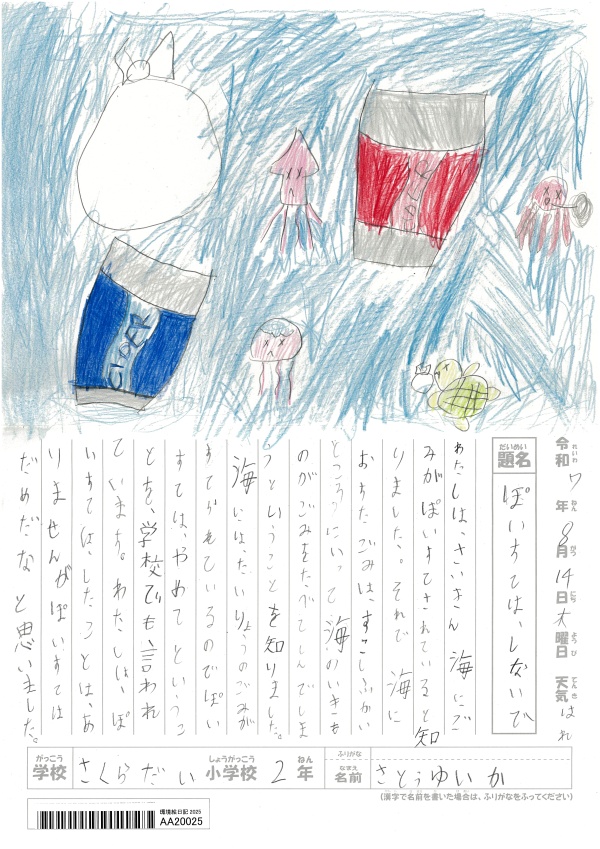 CIDER
令和7年8月14日木曜日 天気 はれ
れいわ ねん がつ にち ようび てんき
だいめい
題名 ぽいすては、しないで
わたしは、さいきん 海にご
みがぽいすてされていると知
りました。それで 海に
おちたごみは、すこしふかい
ところにいって海のいきも
のがごみをたべてしんでしま
うということを知りました。
海には、たいりょうのごみが
すてられているのでぽい
すては、やめてというこ
とを、学校でも、言われ
ています。わたしは、ぽ
いすては、したことは、あ
りませんがぽいすては
だめだなと思いました。
がっこう しょうがっこう ねん ふりがな
学校 さくらだい 小学校 2年
なまえ
名前 さとうゆいか
(漢字で名前を書いた場合は、ふりがなをふってください)
環境絵日記 2025
AA20025